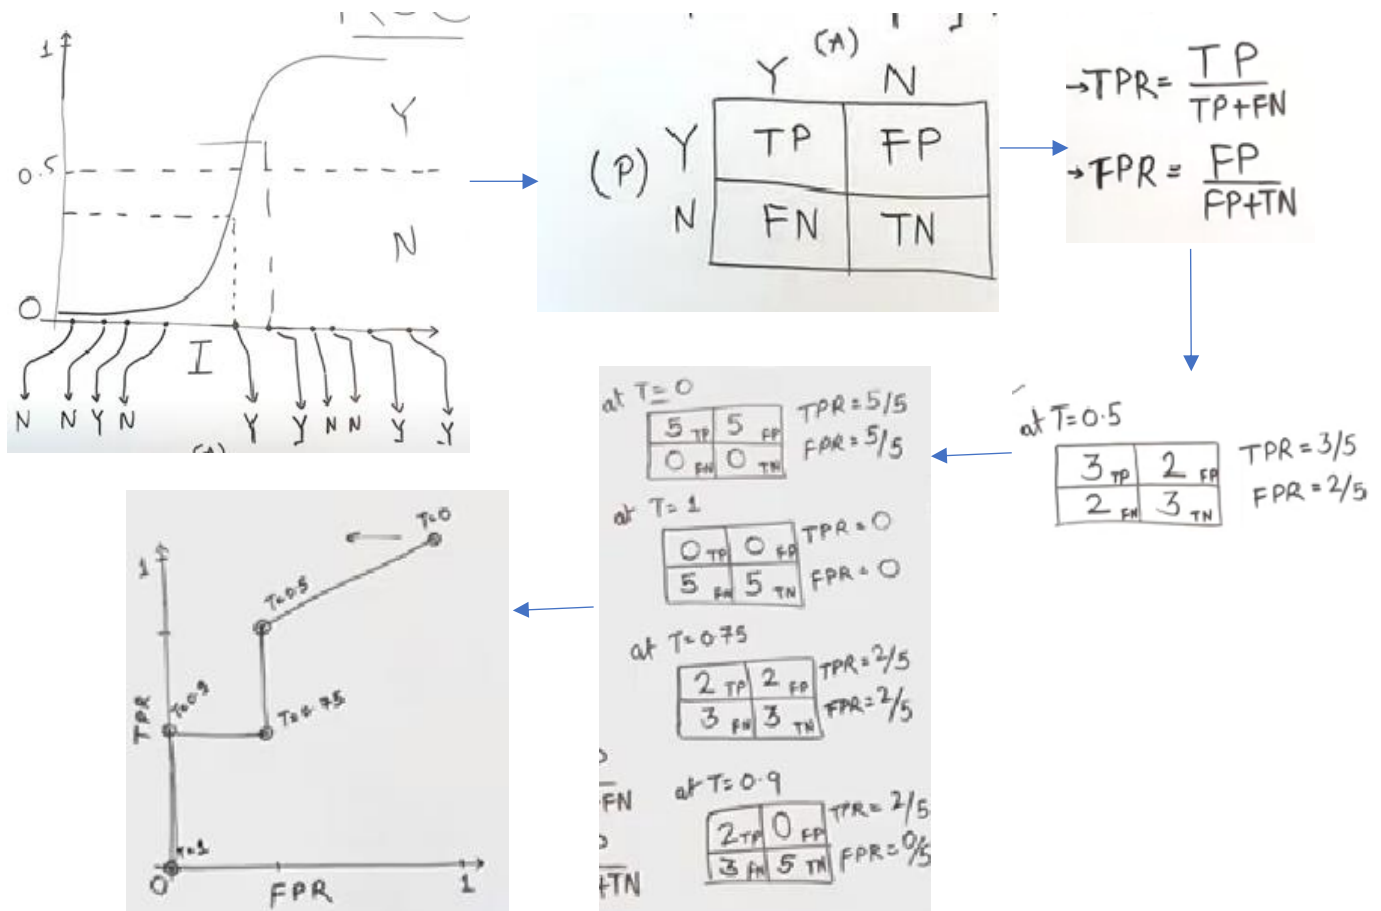 1
Y
0.5
N
0
I
N N Y N Y Y N N Y Y
(A)
Y N
(P) Y TP FP
N FN TN
→TPR= TP
TP+FN
→FPR = FP
FP+TN
at T=0.5
3 TP 2 FP
2 FN 3 TN
TPR=3/5
FPR=2/5
at T=0
5 TP 5 FP
0 FN 0 TN
TPR=5/5
FPR=5/5
at T=1
0 TP 0 FP
5 FN 5 TN
TPR=0
FPR=0
at T=0.75
2 TP 2 FP
3 FN 3 TN
TPR=2/5
FPR=2/5
at T=0.9
2 TP 0 FP
3 FN 5 TN
TPR=2/5
FPR=0/5
FN
+TN
T=0
1
T=0.5
T=0.9
TPR
T=0.75
T=1
0
FPR
1